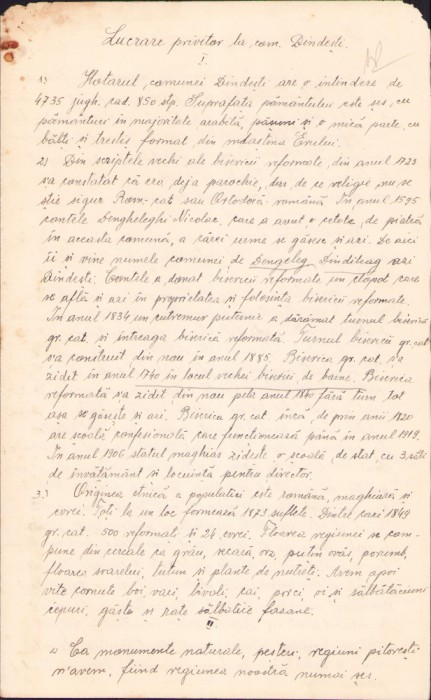 Lucrare privitor la com. Dindești.
I.
1) Hotarul comunei Dindești are o intindere de
4735 jugh. cad. 850 stp. Suprafața pământului este șes, cu
pământuri în majoritate arabilă, pășuni și o mică parte cu
bălți și trestes format din mlastina Ereilui.
2) Din scriptele vechi ale bisericii reformate, din anul 1723
s'a constatat că era deja parochie, dar de ce religie nu se
știe sigur Rom-cat sau Ortodoxă română. În anul 1595
contele Dengheleghi Nicolae, care a avut o cetate de piatră
în aceasta comună, a cărei urme se găsesc și azi. De aici
îi și vine numele comunei de Dengeleg, Dindileag azi
Dindești. Contele a donat bisericii reformate un clopot care
se află și azi în proprietatea și folosința bisericii reformate.
În anul 1834 un cutremur puternic a dărâmat turnul bisericii
gr. cat. și intreaga biserică reformată. Turnul bisericii gr. cat
s'a construit din nou în anul 1885. Biserica gr. cat. s'a
zidit în anul 1780 în locul vechei biserici de barne. Biserica
reformată s'a zidit din nou pela anul 1840 fără turn tot
așa se găsește și azi. Biserica gr. cat încă de prin anii 1820
are scoală confesională care funcționează până în anul 1919.
În anul 1906 statul maghiar zideste o scoală de stat cu 3 săli
de învățământ si locuința pentru director.
3.) Originea etnică a populatiei este română, maghiară și
evrei. Toți la un loc formează 1873 suflete. Dintre cari 1349
gr. cat. 500 reformati si 24 evrei. Floarea regiunei se com-
pune din cereale ca grâu, secară, orz, puțin ovăs, porumb,
floarea soarelui, tutun si plante de nutreti. Avem apoi
vite cornute boi, vaci, bivoli, cai, porci, oi si sălbătăciuni
iepuri, gâște si rate sălbatice fasane.
II
1) Ca monumente naturale, pesteri, regiuni pitorești
n'avem, fiind regiunea noastră numai șes.